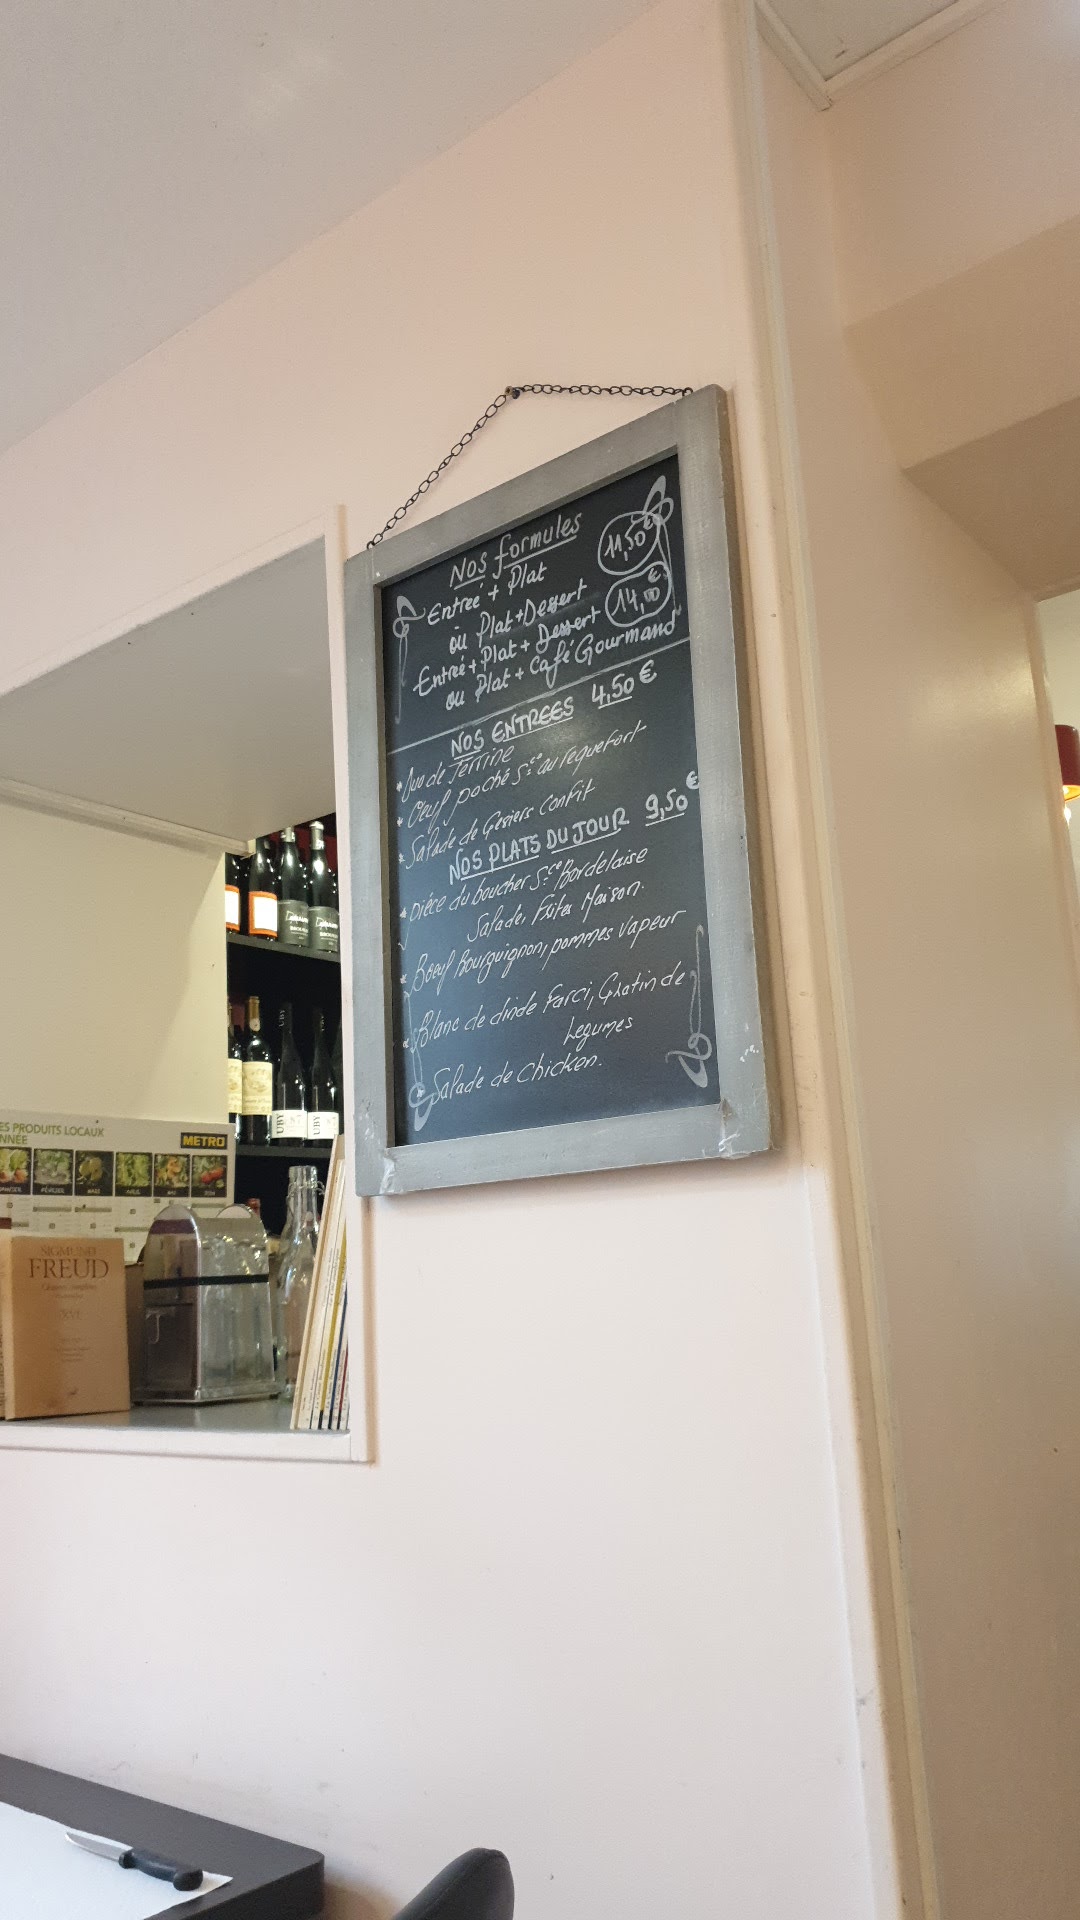 Nos formules
Entrée + Plat
ou Plat + Dessert
11,50€
Entrée + Plat + Dessert
ou Plat + Café Gourmand
14,00€
NOS ENTREES 4,50€
* Duo de Terrine
* Oeuf poché Sce au roquefort
* Salade de Gésiers Confit
NOS PLATS DU JOUR 9,50€
* Pièce du boucher Sce Bordelaise
Salade, Frites Maison.
* Boeuf Bourguignon, pommes vapeur
* Blanc de dinde Farci, Gratin de
Legumes
* Salade de Chicken.
ES PRODUITS LOCAUX
NNEE
METRO
SIGMUND
FREUD
UBY
UBY